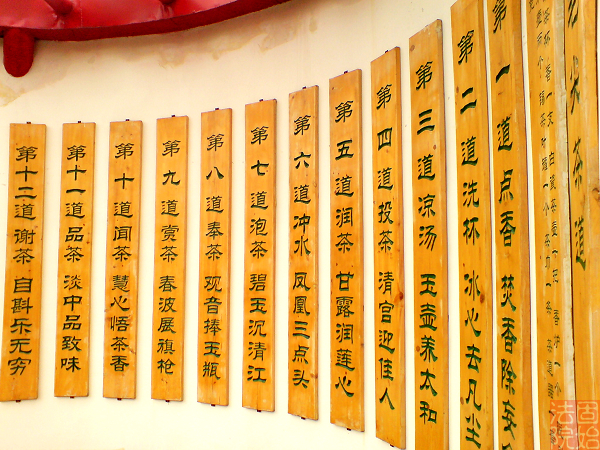 红尖茶道
第一道点香 焚香除妄
第二道洗杯 冰心去凡尘
第三道凉汤 玉壶养太和
第四道投茶 清宫迎佳人
第五道润茶 甘露润莲心
第六道冲水 凤凰三点头
第七道泡茶 碧玉沉清江
第八道奉茶 观音捧玉瓶
第九道赏茶 春波展旗枪
第十道闻茶 慧心悟茶香
第十一道品茶 淡中品致味
第十二道谢茶 自斟乐无穷
固始法院